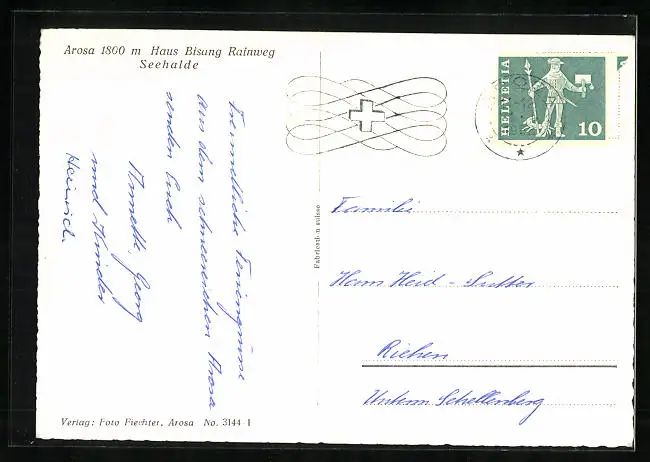 Arosa 1800 m Haus Bisung Rainweg
Seehalde
Freundliche Feriengrüsse
aus dem schneereichen Arosa
senden Euch
Annette, Georg
und Kinder
Heinrich.
Fabrication suisse
HELVETIA
10
Familie
Hans Heid - Sutter
Riehen
Unterm Schellenberg
Verlag: Foto Fiechter, Arosa No. 3144 1